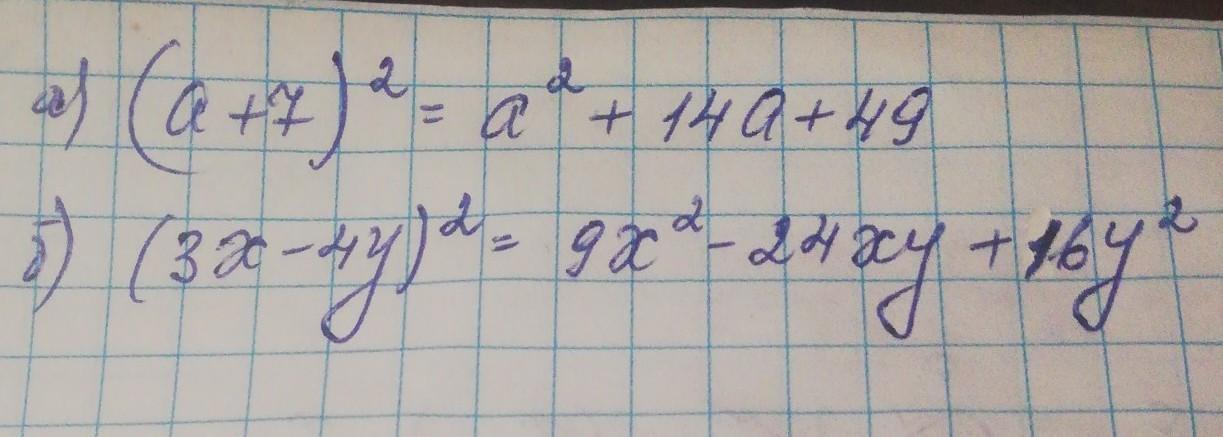 а) (a+7)² = a² + 14a + 49
б) (3x - 4y)² = 9x² - 24xy + 16y²